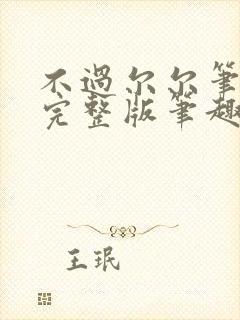 不過尔尔筆
完整版筆趣
王珉